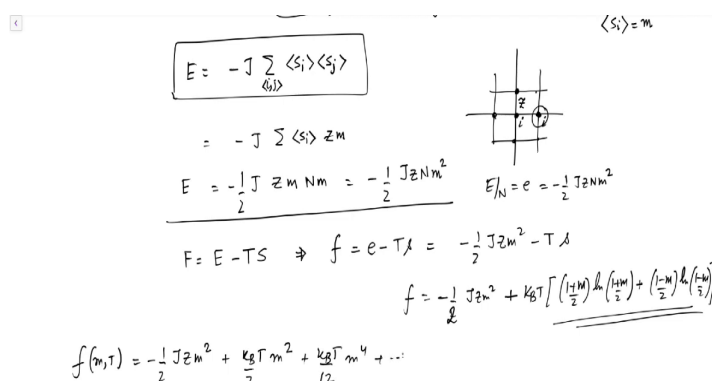 ⟨Sᵢ⟩ = m
E = -J Σ ⟨Sᵢ⟩⟨Sⱼ⟩
⟨i,j⟩
z
i
j
= -J Σ ⟨Sᵢ⟩ zm
E = -1/2 J zm Nm = -1/2 JzNm²
E/N = e = -1/2 JzNm²
F = E - TS ⇒ f = e - Ts = -1/2 Jzm² - Ts
f = -1/2 Jzm² + k_BT [(1+m/2) ln (1+m/2) + (1-m/2) ln (1-m/2)]
f(m,T) = -1/2 Jzm² + k_BT/2 m² + k_BT/12 m⁴ + ...